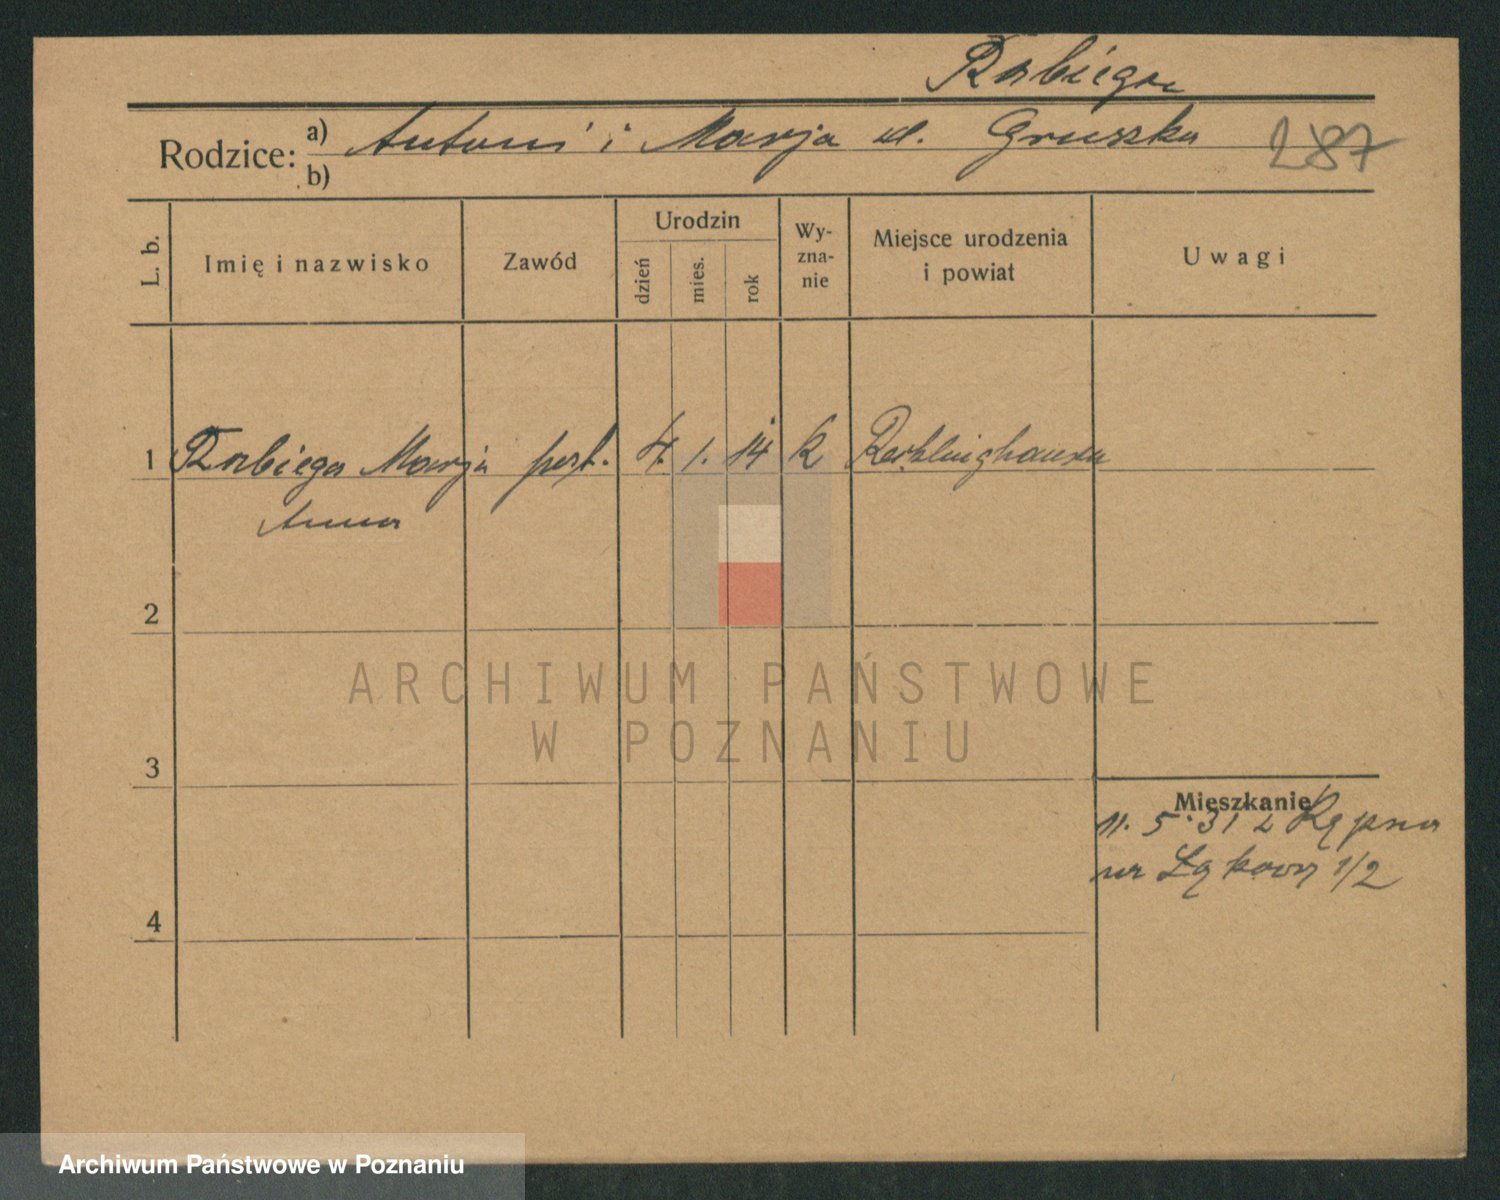 Rabiega
Rodzice: a) Antoni i Marja d. Gruszka 287
b)
L. b. Imię i nazwisko Zawód Urodzin dzień mies. rok Wy-zna-nie Miejsce urodzenia i powiat Uwagi
1 Rabiega Marja 4. 1. 14 k Recklinghausen
Anna
2
3
Mieszkanie
11. 5. 31 z Kępna
na Łąkową 1/2
4
ARCHIWUM PAŃSTWOWE
W POZNANIU
Archiwum Państwowe w Poznaniu